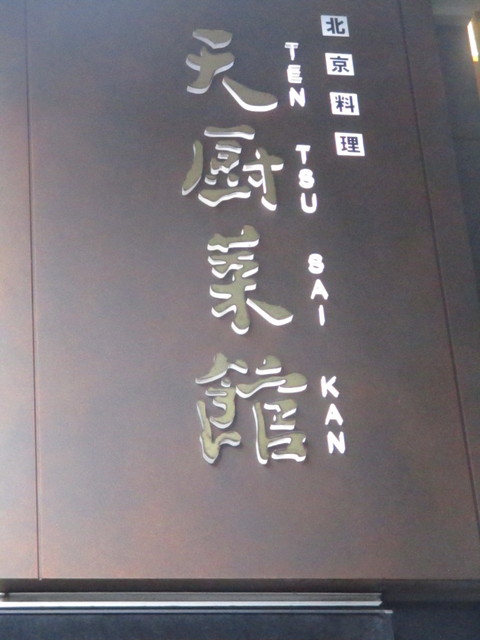 北京料理
TEN TSU SAI KAN
天厨菜館